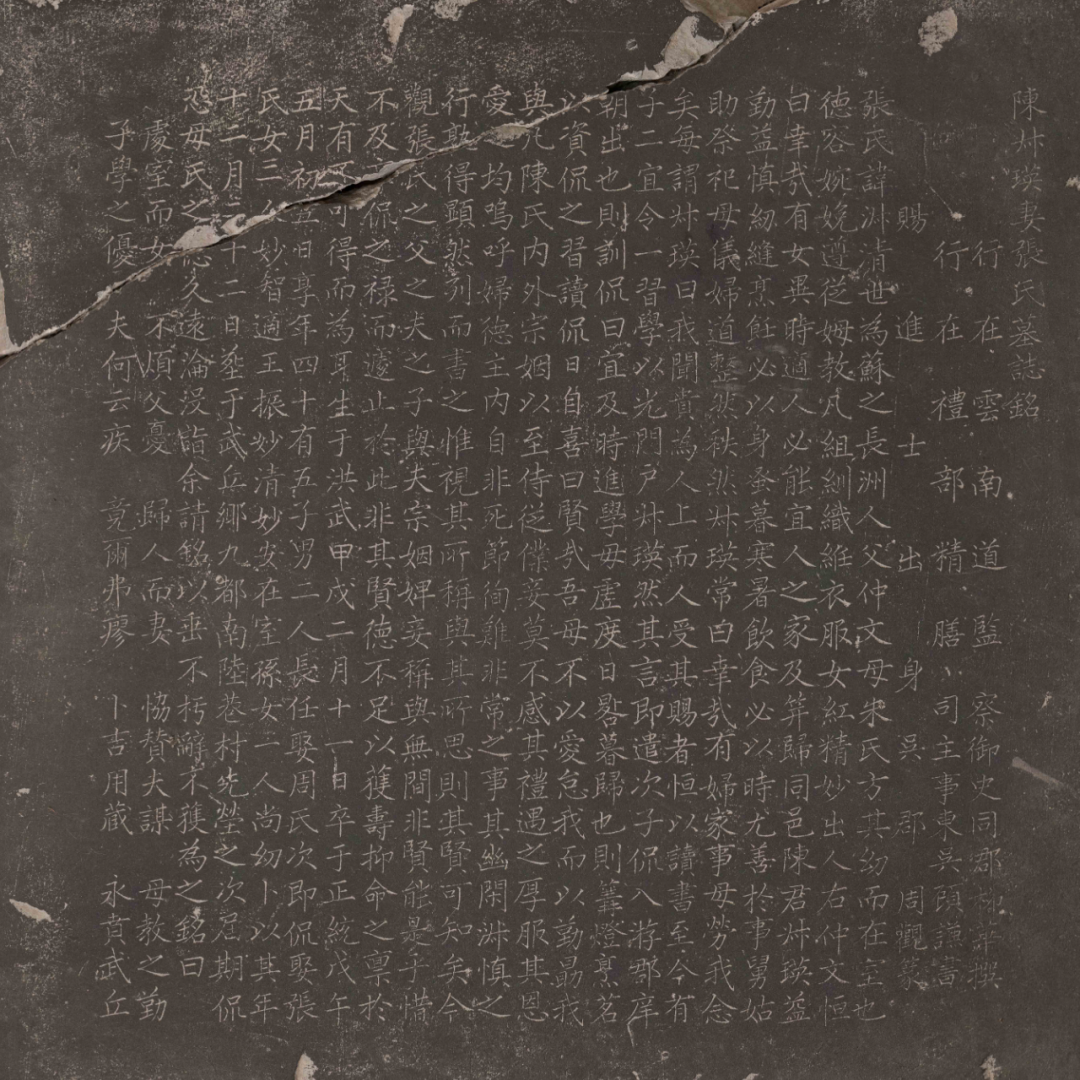 陳叔瑛妻張氏墓誌銘
行在雲南道監察御史同郡 撰
行在禮部精膳司主事東吳 謙書
賜進士出身吳郡周觀篆
張氏諱淑清世為蘇之長洲人父仲文母朱氏方其幼而在室也
德容婉娩遵從姆教凡組紃織維衣服女紅精妙出人右仲文恒
曰幸哉有女異時適人必能宜人之家及笄歸同邑陳君叔瑛益
勤益慎紉縫烹飪必以身蚤暮寒暑飲食必以時尤善於事舅姑
助祭祀母儀婦道整然秩然叔瑛常曰幸哉有婦家事毋勞我念
矣每謂叔瑛曰我聞貴為人上而人受其賜者恒以讀書至今有
子二宜令一習學以光門戶叔瑛然其言即遣次子侃入游郡庠
朝出也則訓侃曰宜及時進學毋虛度日晷暮歸也則篝燈烹茗
以資侃之習讀侃日自喜曰賢哉吾母不以愛怠我而以勤勗我
與凡陳氏內外宗姻以至侍從僕妾莫不感其禮遇之厚服其恩
愛之均嗚呼婦德主內自非死節徇難非常之事其幽閑淑慎之
行孰得顯然列而書之惟視其所稱與其所思則其賢可知矣今
觀張氏之父之夫之子與夫宗姻婢妾稱與無間非賢能是乎惜
不及 侃之祿而遽止於此非其賢德不足以獲壽抑命之稟於
天有不可得而為耳生于洪武甲戌二月十一日卒于正統戊午
五月初 日享年四十有五子男二人長任娶周氏次即侃娶張
氏女三 妙智適王振妙清妙安在室孫女一人尚幼卜以其年
十二月 十二日塟于武丘鄉九都南陸巷村先塋之次忌期侃
慈母氏之 久遠淪沒詣余請銘以垂不朽辭不獲為之銘曰
處室而女 不順父憂 歸人而妻 協贊夫謀 母教之勤
子學之優 夫何云疾 竟爾弗瘳 卜吉用葳 永賁武丘